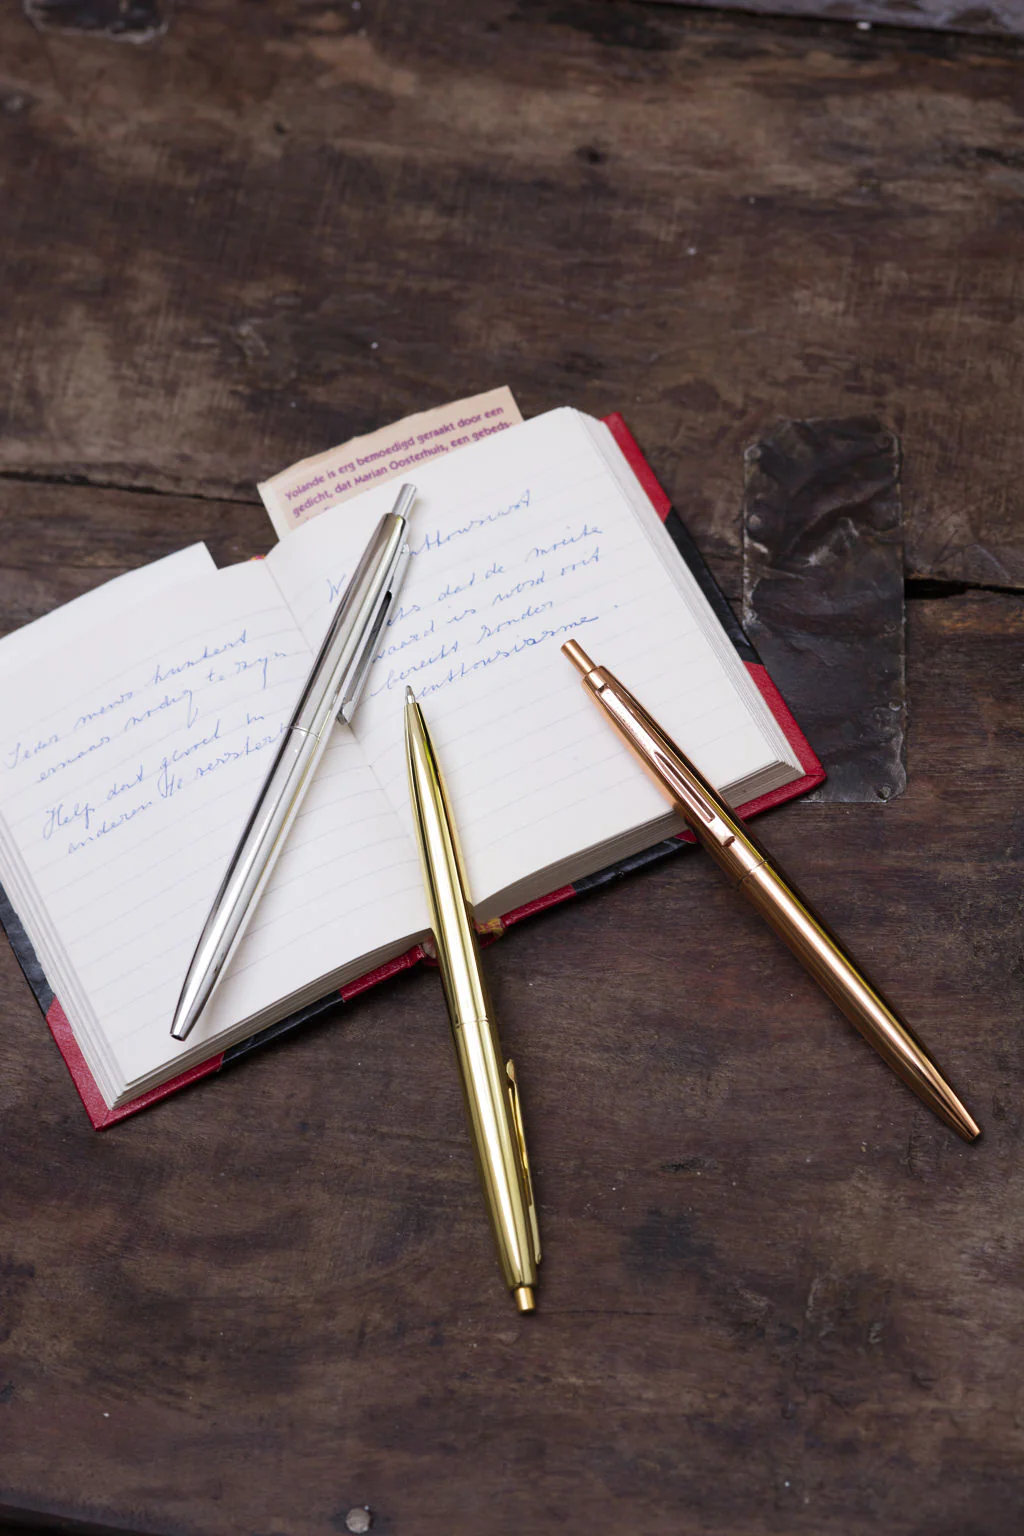 Yolande is erg bemoedigd geraakt door een
gedicht, dat Marian Oosterhuis, een gebeds-
Ieder mens hunkert
ernaar nodig te zijn
Help dat gevoel in
anderen te versterk
nthousiast
ets dat de moeite
waard is word ooit
bereikt zonder
enthousiasme.